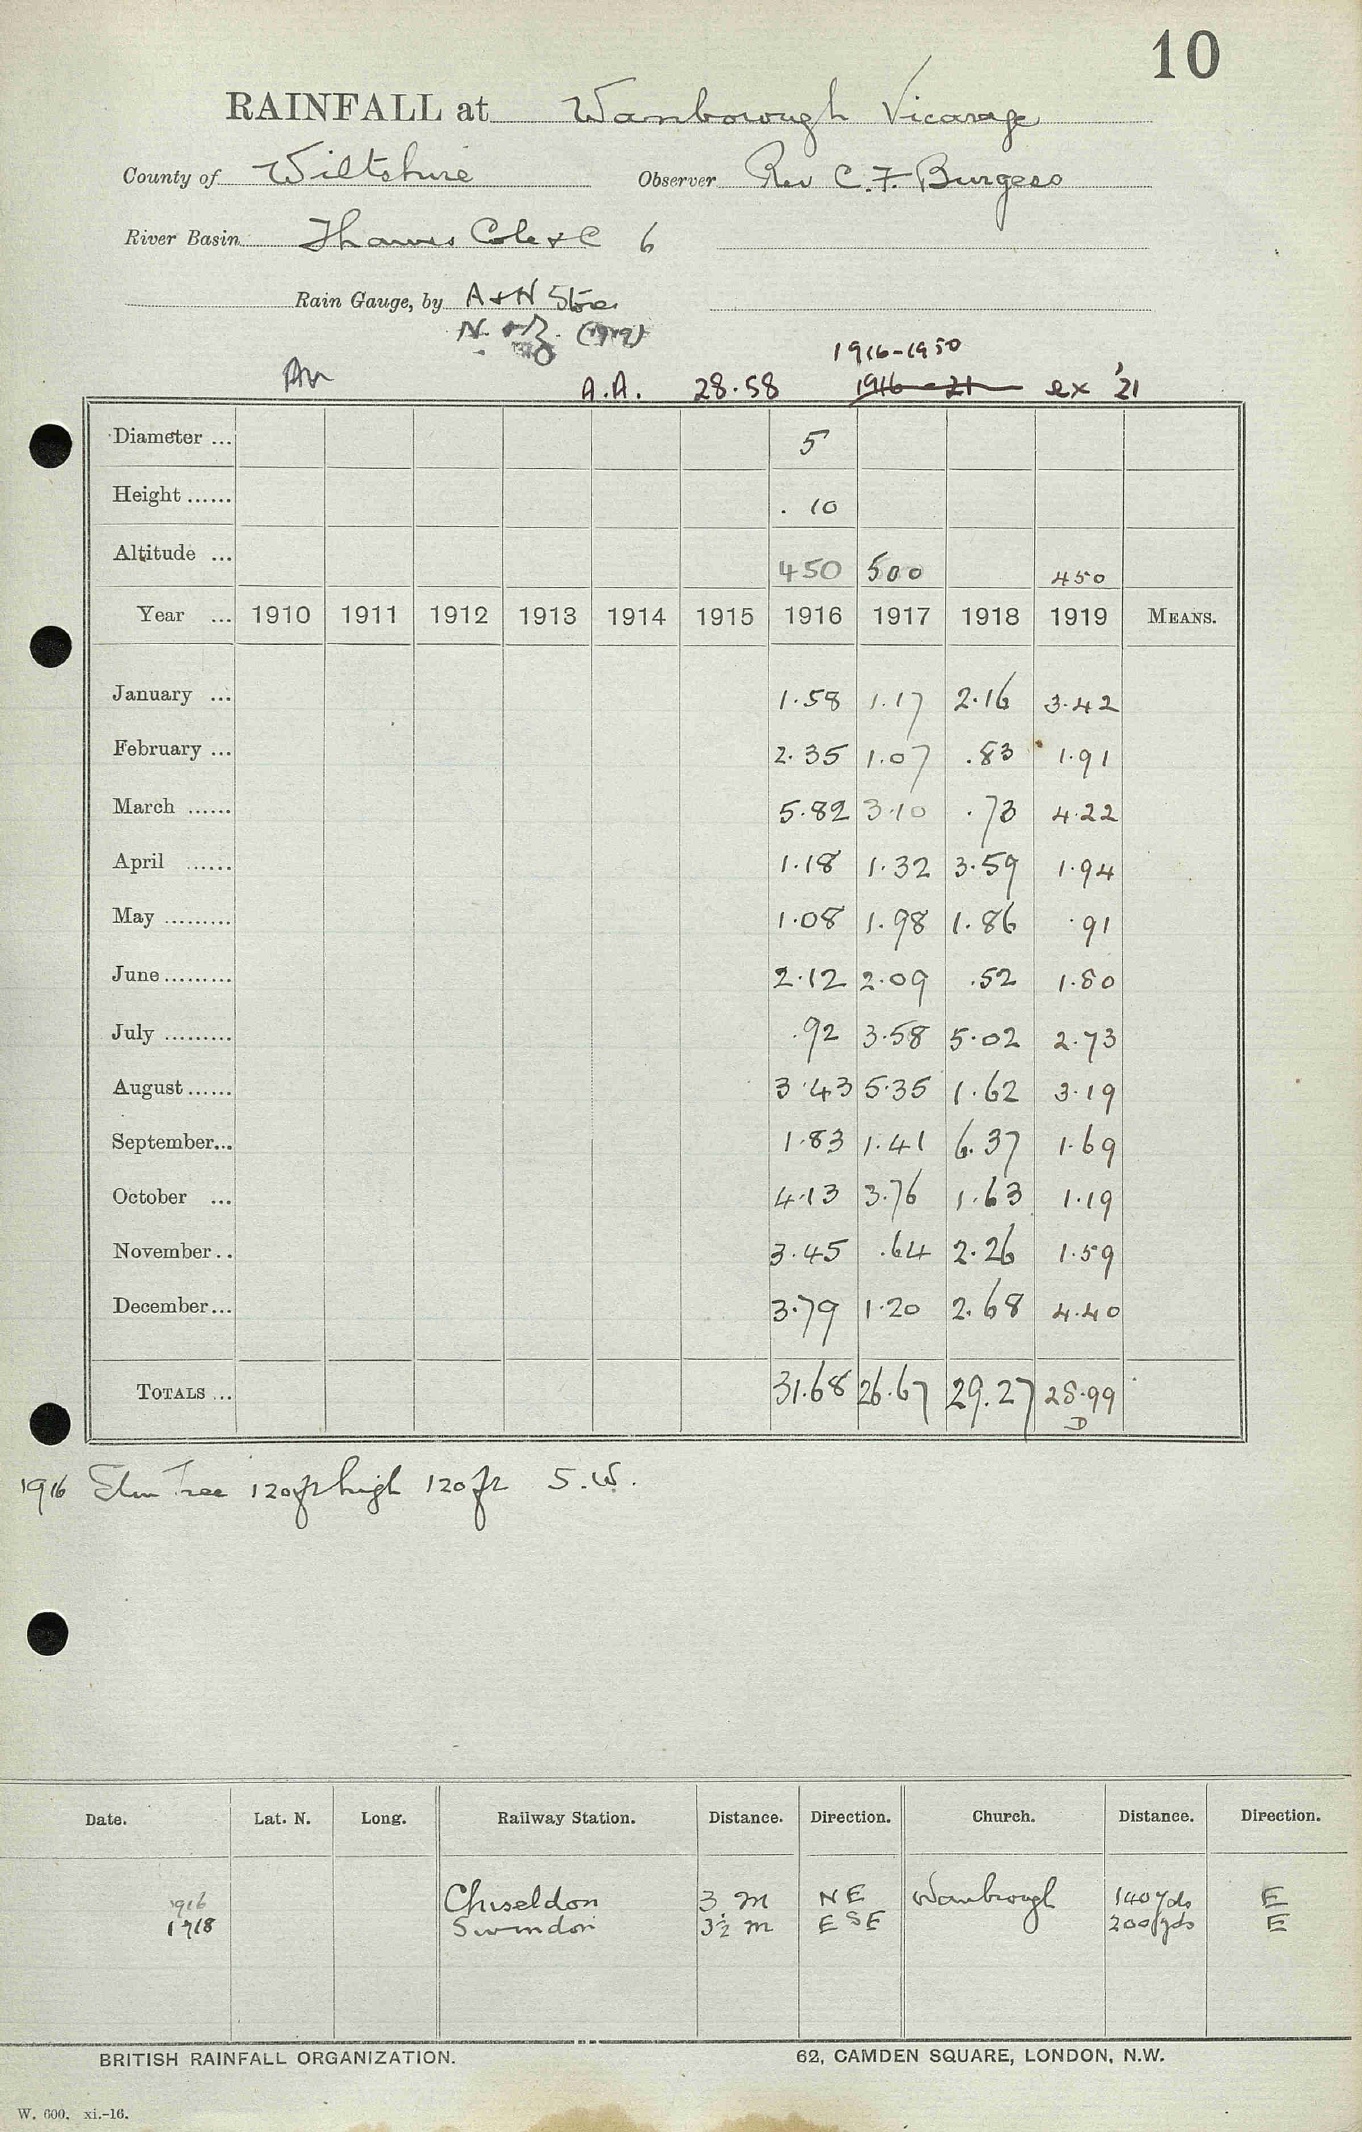 10
RAINFALL at Wanborough Vicarage
County of Wiltshire Observer Rev C. F. Burgess
River Basin Thames Cole &c 6
Rain Gauge, by A & N Store
N. & Z. (1919)
1916-1950
A.A. 28.58 1916 - 21 ex '21
Diameter ... 5
Height ...... . 10
Altitude ... 450 500 450
Year ... 1910 1911 1912 1913 1914 1915 1916 1917 1918 1919 MEANS.
January ... 1.58 1.17 2.16 3.42
February ... 2.35 1.07 .83 1.91
March ...... 5.82 3.10 .73 4.22
April ...... 1.18 1.32 3.59 1.94
May ......... 1.08 1.98 1.86 .91
June ......... 2.12 2.09 .52 1.80
July ......... .92 3.58 5.02 2.73
August ...... 3.43 5.35 1.62 3.19
September... 1.83 1.41 6.37 1.69
October ... 4.13 3.76 1.63 1.19
November .. 3.45 .64 2.26 1.59
December ... 3.79 1.20 2.68 4.40
TOTALS ... 31.68 26.67 29.27 28.99
D
1916 Elm Tree 120ft high 120 ft S.W.
Date. Lat. N. Long. Railway Station. Distance. Direction. Church. Distance. Direction.
1916 Chiseldon 3 m NE Wanbrough 140 yds E
1918 Swindon 3½ m ESE 200 yds E
BRITISH RAINFALL ORGANIZATION. 62, CAMDEN SQUARE, LONDON, N.W.
W. 600. xi.-16.